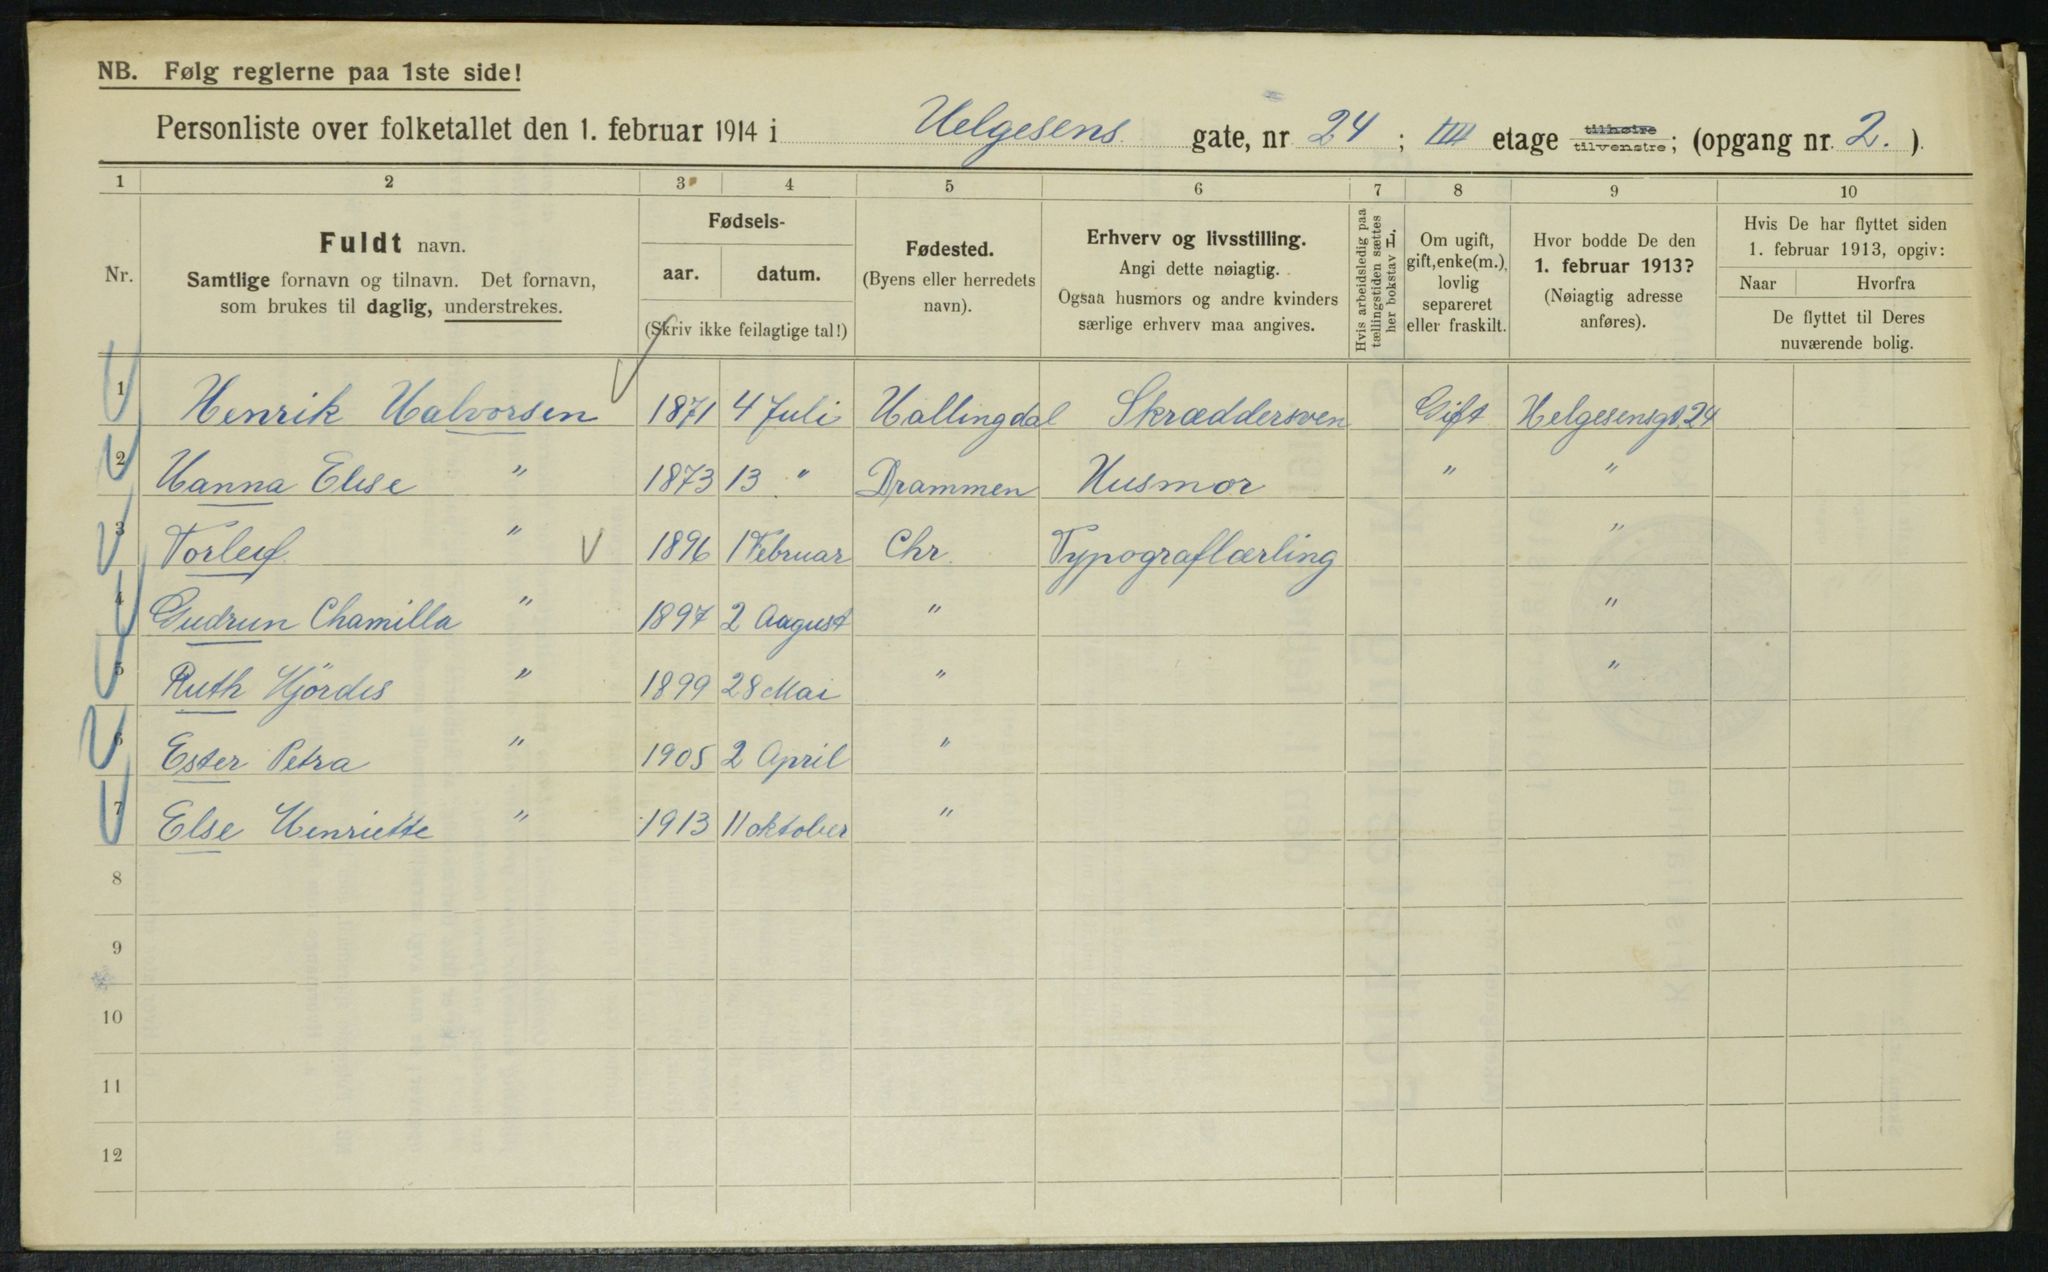 NB. Følg reglerne paa 1ste side!
Personliste over folketallet den 1. februar 1914 i Helgesens gate, nr. 24 ; III etage tilhøire tilvenstre; (opgang nr. 2. ).
1 2 3 4 5 6 7 8 9 10
Nr.
Fuldt navn.
Samtlige fornavn og tilnavn. Det fornavn,
som brukes til daglig, understrekes.
Fødsels-
aar. datum.
(Skriv ikke feilagtige tal!)
Fødested.
(Byens eller herredets
navn).
Erhverv og livsstilling.
Angi dette nøiagtig.
Ogsaa husmors og andre kvinders
særlige erhverv maa angives.
Hvis arbeidsledig paa
tællingstiden sættes
her bokstav L.
Om ugift,
gift, enke(m.),
lovlig
separeret
eller fraskilt.
Hvor bodde De den
1. februar 1913?
(Nøiagtig adresse
anføres).
Hvis De har flyttet siden
1. februar 1913, opgiv:
Naar Hvorfra
De flyttet til Deres
nuværende bolig.
1 Henrik Halvorsen 1871 4 Juli Hallingdal Skræddersven Gift Helgesensgt. 24
2 Hanna Elise " 1873 13 " Drammen Husmor " "
3 Torleif " 1896 1 Februar Chr. Typograflærling "
4 Gudrun Chamilla " 1897 2 August " "
5 Ruth Hjördis " 1899 28 Mai " "
6 Ester Petra " 1905 2 April "
7 Else Henriette " 1913 11 oktober "
8
9
10
11
12